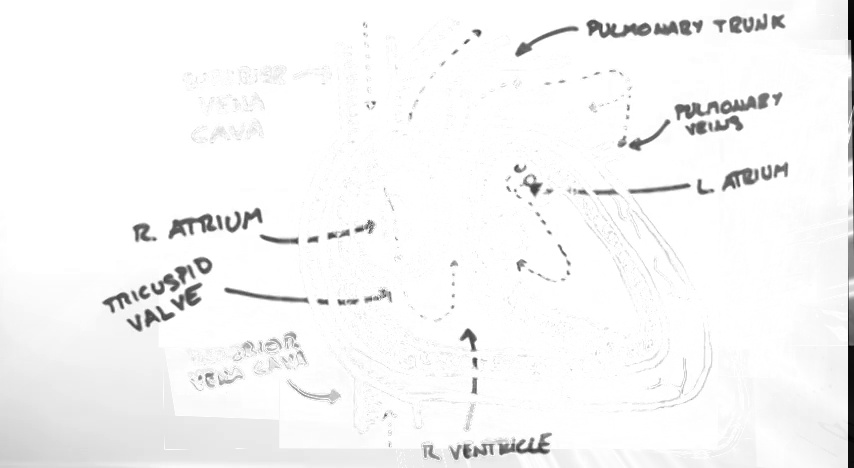 PULMONARY TRUNK
SUPERIOR
VENA
CAVA
PULMONARY
VEINS
L. ATRIUM
R. ATRIUM
TRICUSPID
VALVE
VENA CAVA
R VENTRICLE